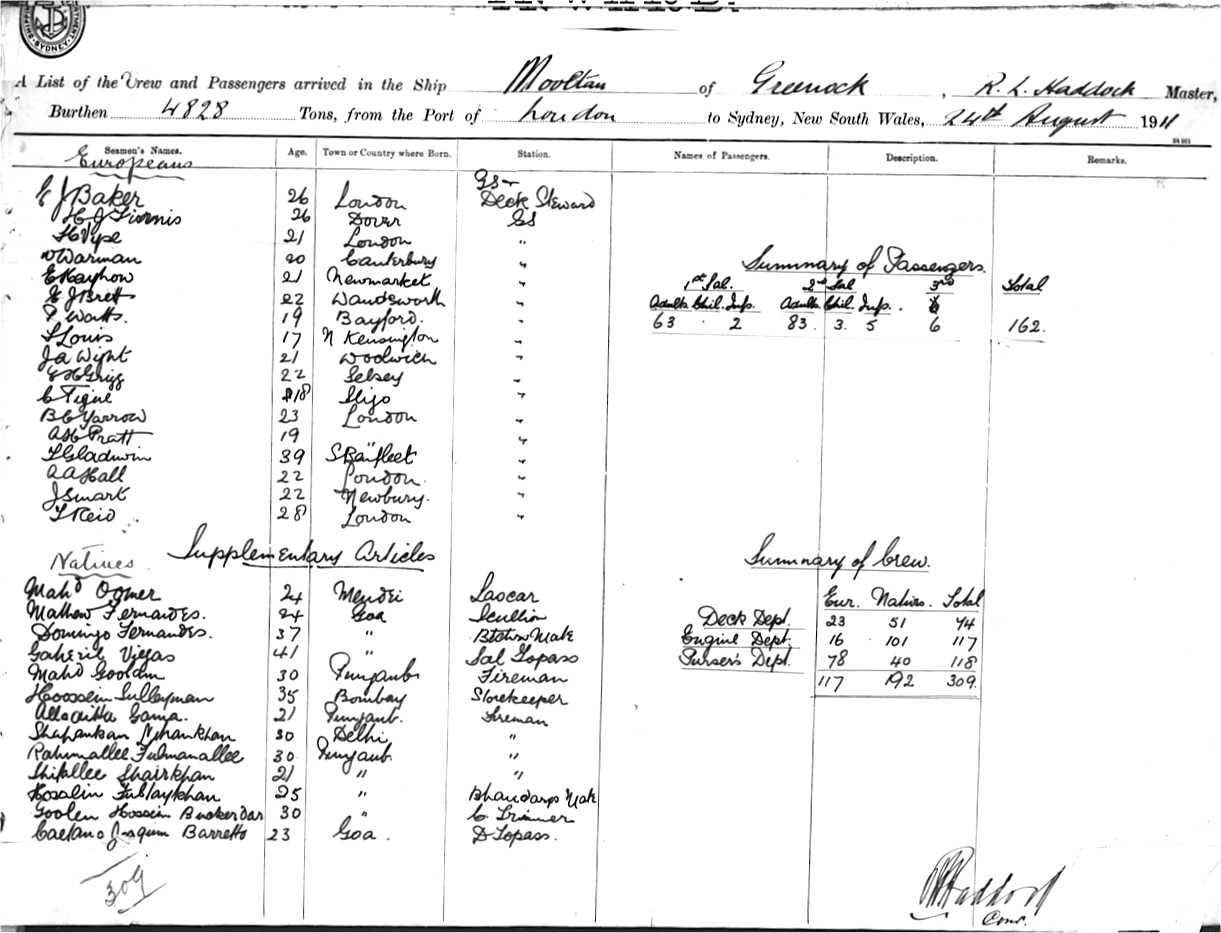 SYDNEY
INWARD.
A List of the Crew and Passengers arrived in the Ship Mooltan of Greenock, R. L. Haddock Master,
Burthen 4828 Tons, from the Port of London to Sydney, New South Wales, 24th August 1911
Seamen's Names. Age. Town or Country where Born. Station. Names of Passengers. Description. Remarks.
Europeans
GS
E J Baker 26 London Deck Steward
26 Dover GS
H Vype 21 London "
W Warman 20 Canterbury "
E Kayhow 21 Newmarket "
E J Brett 22 Wandsworth "
P. Watts. 19 Bayford. "
L Louis 17 N Kensington "
J A Wight 21 Woolwich "
Grigg 22 Selsey "
C Tigue 18 Sligo "
B C Yarrow 23 London "
A H Pratt 19 " "
T Gladwin 39 S Bamfleet "
A A Hall 22 London. "
J Smart 22 Newbury. "
T Reid 28 London "
Summary of Passengers.
1st Sal. 2nd Sal 3rd Total
Adults Chil. Inf. Adults Chil. Inf.
63 . 2 83. 3. 5 6 162.
Supplementary Articles
Natives
Mahd Oomer 24 Lascar
Mathew Fernandes. 24 Goa Scullion
Domingo Fernandes. 37 " Mate
Gabriel Viegas 41 " Sal Topass
Mahd 30 Punjaub Fireman
Hoossein Sulleyman 35 Bombay Storekeeper
21 Punjaub. Fireman
30 Delhi "
Rahimallee 30 Punjaub "
Shairkhan 21 " "
25 " Bhandarys Mate
Goolen Hossein 30 " C Trimmer
Caetano Joaquim Barretto 23 Goa. D Topass.
Summary of Crew.
Eur. Natives. Total
Deck Dept. 23 51 74
Engine Dept. 16 101 117
Purser's Dept. 78 40 118
117 192 309.
309
R L Haddock
Com.